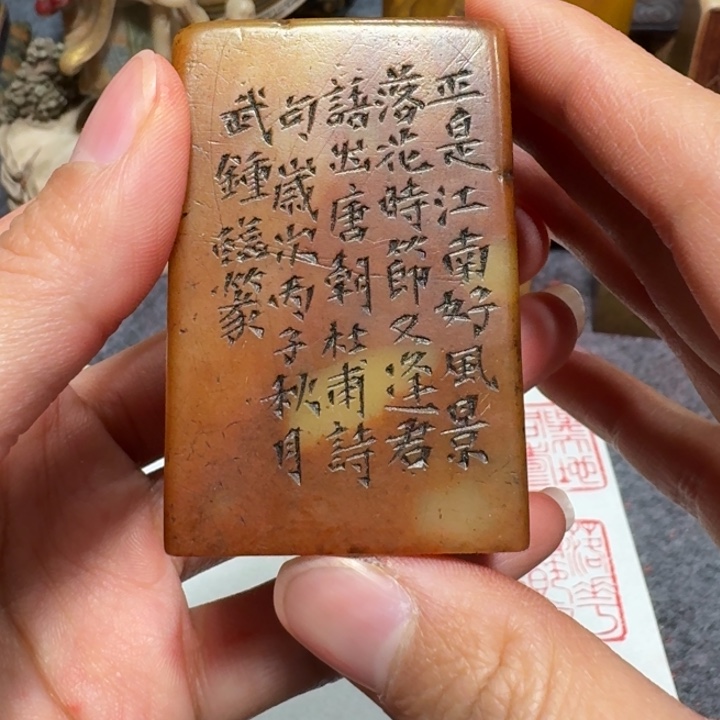 正是江南好風景
落花時節又逢君
語出唐朝杜甫詩
句歲次丙子秋月
武鍾篆